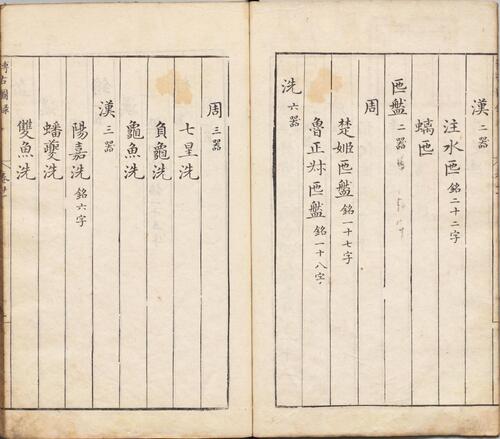 漢 二器
注水匜 銘二十二字
螭匜
匜盤 二器
周
楚姬匜盤 銘一十七字
魯正叔匜盤 銘一十八字
洗 六器
周 三器
七星洗
負龜洗
龜魚洗
漢 三器
陽嘉洗 銘六字
蟠夔洗
雙魚洗
博古圖錄